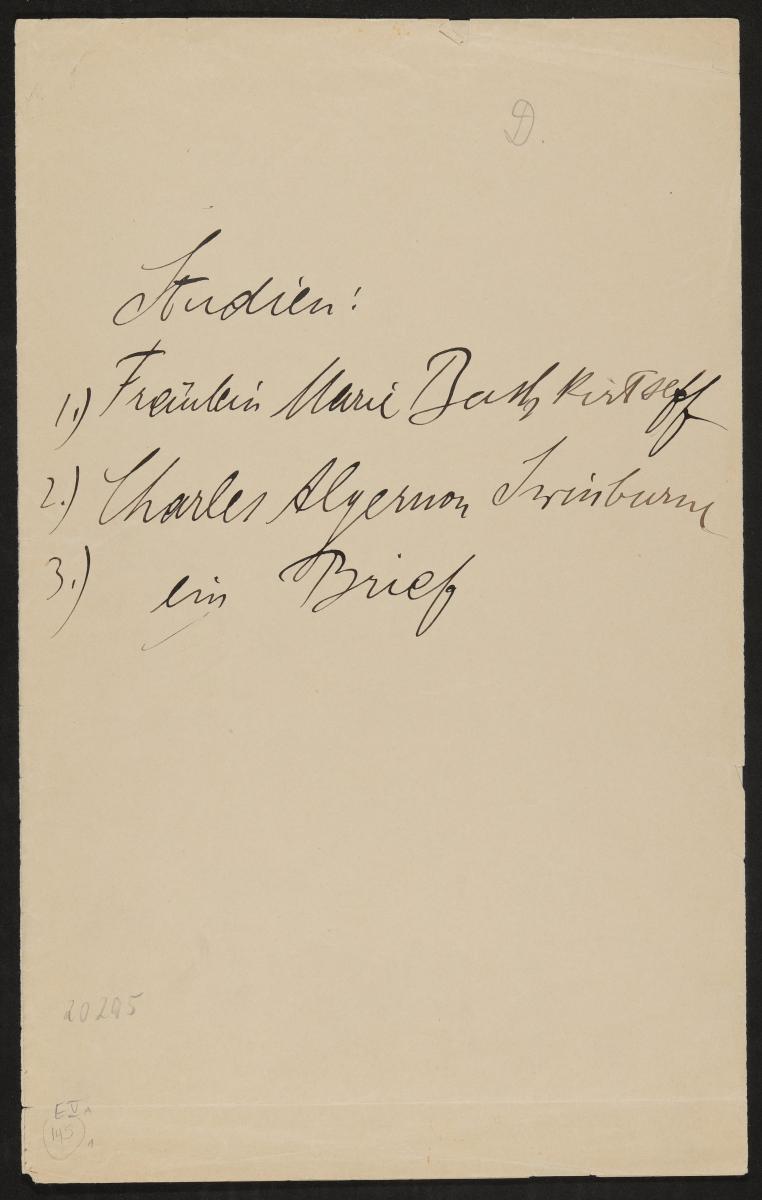 D.
Studien:
1.) Fräulein Marie Bashkirtseff
2.) Charles Algernon Swinburne
3.) ein Brief
20295
E V
195